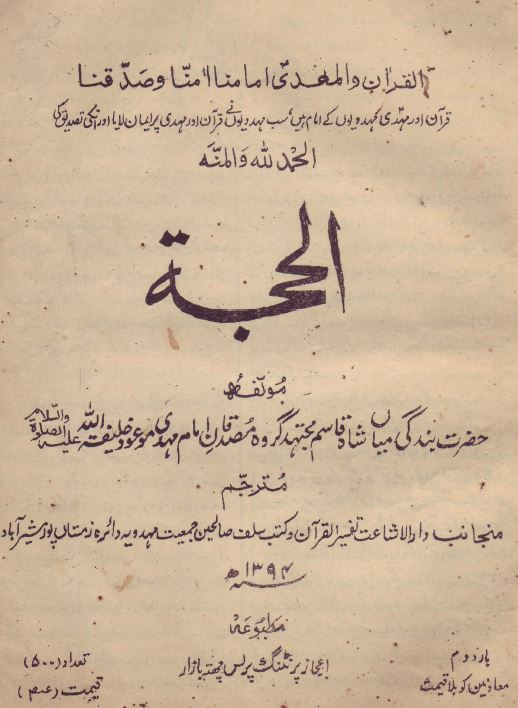 القرآن والمهدی امامنا اٰمنّا وصدّقنا
قرآن اور مہدی مہدویوں کے امام ہیں سب مہدویوں نے قرآن اور مہدی پر ایمان لایا اور انکی تصدیق کی
الحمد للہ والمنّہ
الحجة
مؤلفہٗ
حضرت بندگی میاں شاہ قاسم مجتہد گروہ مصدقان امام مہدی موعود خلیفة اللہ علیہ الصلوٰة والسّلام
مُترجّم
منجانب دارالاشاعت تفسیر القرآن وکتب سلف صالحین جمعیت مہدویہ دائرہ زمستان پور مشیرآباد
۱۳۹۴ھ
مطبوعہ
اعجاز پرنٹنگ پریس چھتہ بازار
بار دوم
معاونین کو بلا قیمت
تعداد (۵۰۰)
قیمت